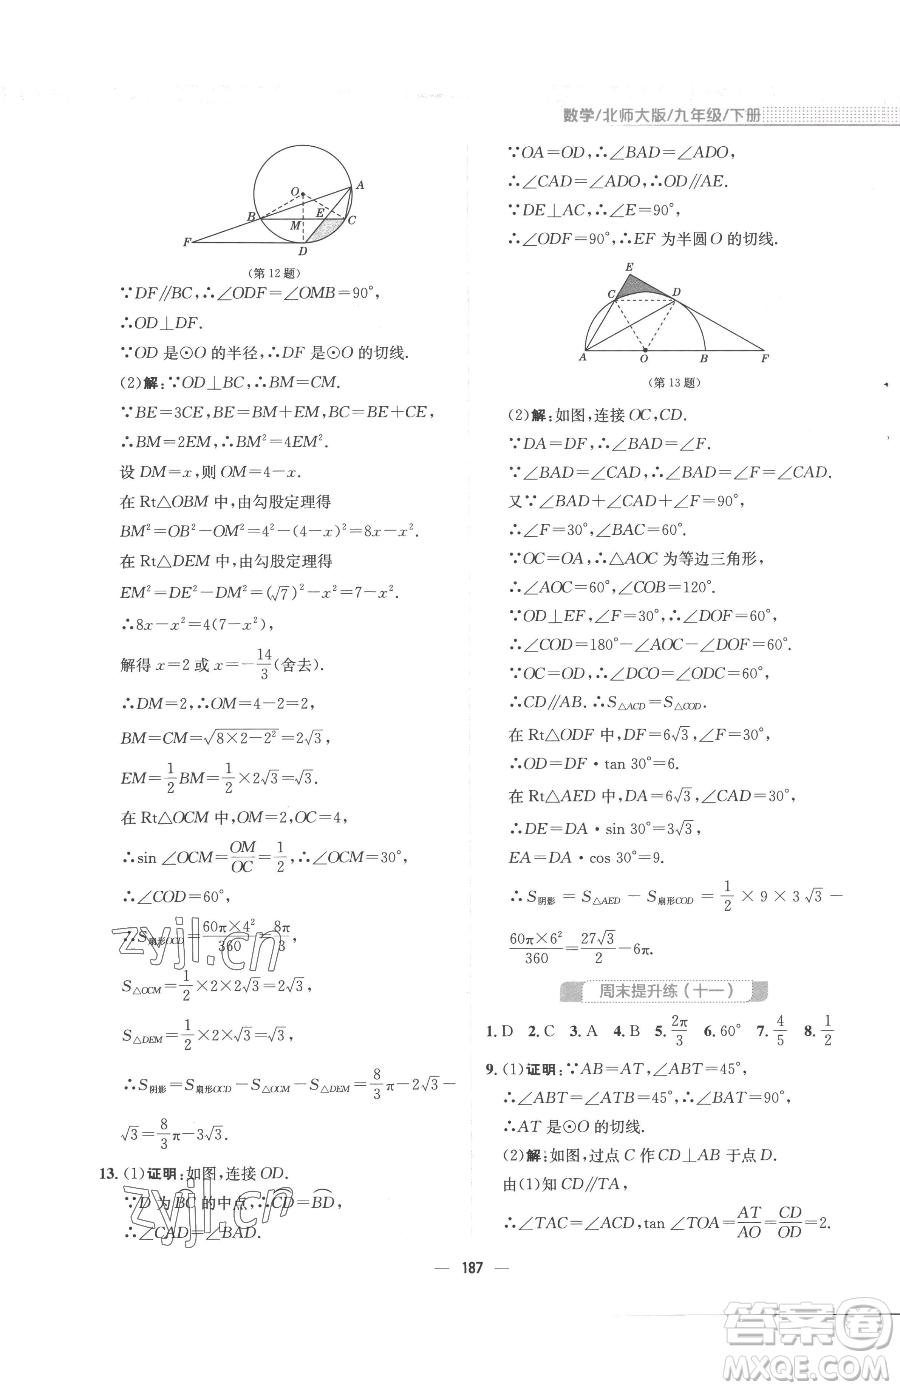 数学/北师大版/九年级/下册
O
A
B
M
E
C
F
D
(第12题)
∵DF∥BC,∴∠ODF=∠OMB=90°,
∴OD⊥DF.
∵OD 是⊙O 的半径,∴DF 是⊙O 的切线.
(2)解:∵OD⊥BC,∴BM=CM.
∵BE=3CE,BE=BM+EM,BC=BE+CE,
∴BM=2EM,∴BM²=4EM².
设 DM=x,则 OM=4-x.
在 Rt△OBM 中,由勾股定理得
BM²=OB²-OM²=4²-(4-x)²=8x-x².
在 Rt△DEM 中,由勾股定理得
EM²=DE²-DM²=(√7)²-x²=7-x².
∴8x-x²=4(7-x²),
解得 x=2 或 x=-14/3(舍去).
∴DM=2,∴OM=4-2=2,
BM=CM=√(8×2-2²)=2√3,
EM=1/2BM=1/2×2√3=√3.
在 Rt△OCM 中,OM=2,OC=4,
∴sin ∠OCM=OM/OC=1/2,∴∠OCM=30°,
∴∠COD=60°,
∴S扇形OCD=60π×4²/360=8π/3,
S△OCM=1/2×2×2√3=2√3,
S△DEM=1/2×2×√3=√3,
∴S阴影=S扇形OCD-S△OCM-S△DEM=8/3π-2√3-
√3=8/3π-3√3.
13.(1)证明:如图,连接 OD.
∵D 为BC⌒的中点,∴CD⌒=BD⌒,
∴∠CAD=∠BAD.
∵OA=OD,∴∠BAD=∠ADO,
∴∠CAD=∠ADO,∴OD∥AE.
∵DE⊥AC,∴∠E=90°,
∴∠ODF=90°,∴EF 为半圆 O 的切线.
E
C
D
A
O
B
F
(第13题)
(2)解:如图,连接 OC,CD.
∵DA=DF,∴∠BAD=∠F.
∵∠BAD=∠CAD,∴∠F=∠BAD=∠CAD.
又∵∠BAD+∠CAD+∠F=90°,
∴∠F=30°,∠BAC=60°.
∵OC=OA,∴△AOC 为等边三角形,
∴∠AOC=60°,∠COB=120°.
∵OD⊥EF,∠F=30°,∴∠DOF=60°,
∴∠COD=180°-∠AOC-∠DOF=60°.
∵OC=OD,∴∠DCO=∠ODC=60°,
∴CD∥AB.∴S△ACD=S△COD.
在 Rt△ODF 中,DF=6√3,∠F=30°,
∴OD=DF·tan 30°=6.
在 Rt△AED 中,DA=6√3,∠CAD=30°,
∴DE=DA·sin 30°=3√3,
EA=DA·cos 30°=9.
∴S阴影=S△AED-S扇形COD=1/2×9×3√3-
60π×6²/360=27√3/2-6π.
周末提升练(十一)
1.D 2.C 3.A 4.B 5.2π/3 6.60° 7.4/5 8.1/2
9.(1)证明:∵AB=AT,∠ABT=45°,
∴∠ABT=∠ATB=45°,∴∠BAT=90°,
∴AT 是⊙O 的切线.
(2)解:如图,过点 C 作 CD⊥AB 于点 D.
由(1)知 CD∥TA,
∴∠TAC=∠ACD,tan ∠TOA=AT/AO=CD/OD=2.
— 187 —
zyjl.cn
zyjl.cn
答案圈
MXQE.COM